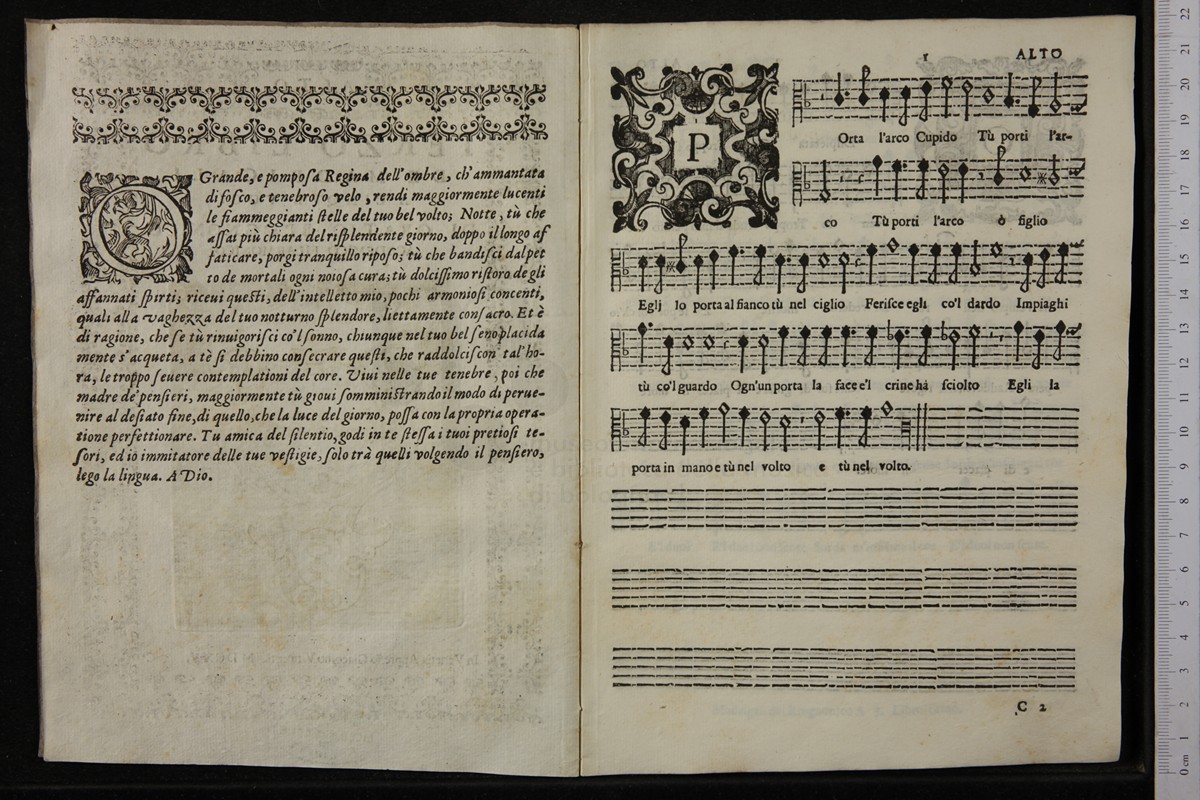 O Grande, e pomposa Regina dell'ombre, ch'ammantata
di fosco, e tenebroso velo, rendi maggiormente lucenti
le fiammeggianti stelle del tuo bel volto; Notte, tù che
assai più chiara del risplendente giorno, doppo il longo af
faticare, porgi tranquillo riposo; tù che bandisci dal pet
to de mortali ogni noiosa cura; tù dolcissimo ristoro de gli
affannati spirti; riceui questi, dell'intelletto mio, pochi armoniosi concenti,
quali alla vaghezza del tuo notturno splendore, liettamente consacro. Et è
di ragione, che se tù rinuigorisci co'l sonno, chiunque nel tuo bel seno placida
mente s'acqueta, a tè si debbino consecrare questi, che raddolciscon tal'ho-
ra, le troppo seuere contemplationi del core. Viui nelle tue tenebre, poi che
madre de' pensieri, maggiormente tù gioui somministrando il modo di perue-
nire al desiato fine, di quello, che la luce del giorno, possa con la propria opera-
tione perfettionare. Tu amica del silentio, godi in te stessa i tuoi pretiosi te-
sori, ed io immitatore delle tue vestigie, solo trà quelli volgendo il pensiero,
lego la lingua. A Dio.
1 ALTO
P Orta l'arco Cupido Tù porti l'ar-
co Tù porti l'arco ò figlio
Eglj lo porta al fianco tù nel ciglio Ferisce egli co'l dardo Impiaghi
tù co'l guardo Ogn'un porta la face e'l crine hà sciolto Egli la
porta in mano e tù nel volto e tù nel volto.
C 2
0 cm 1 2 3 4 5 6 7 8 9 10 11 12 13 14 15 16 17 18 19 20 21 22